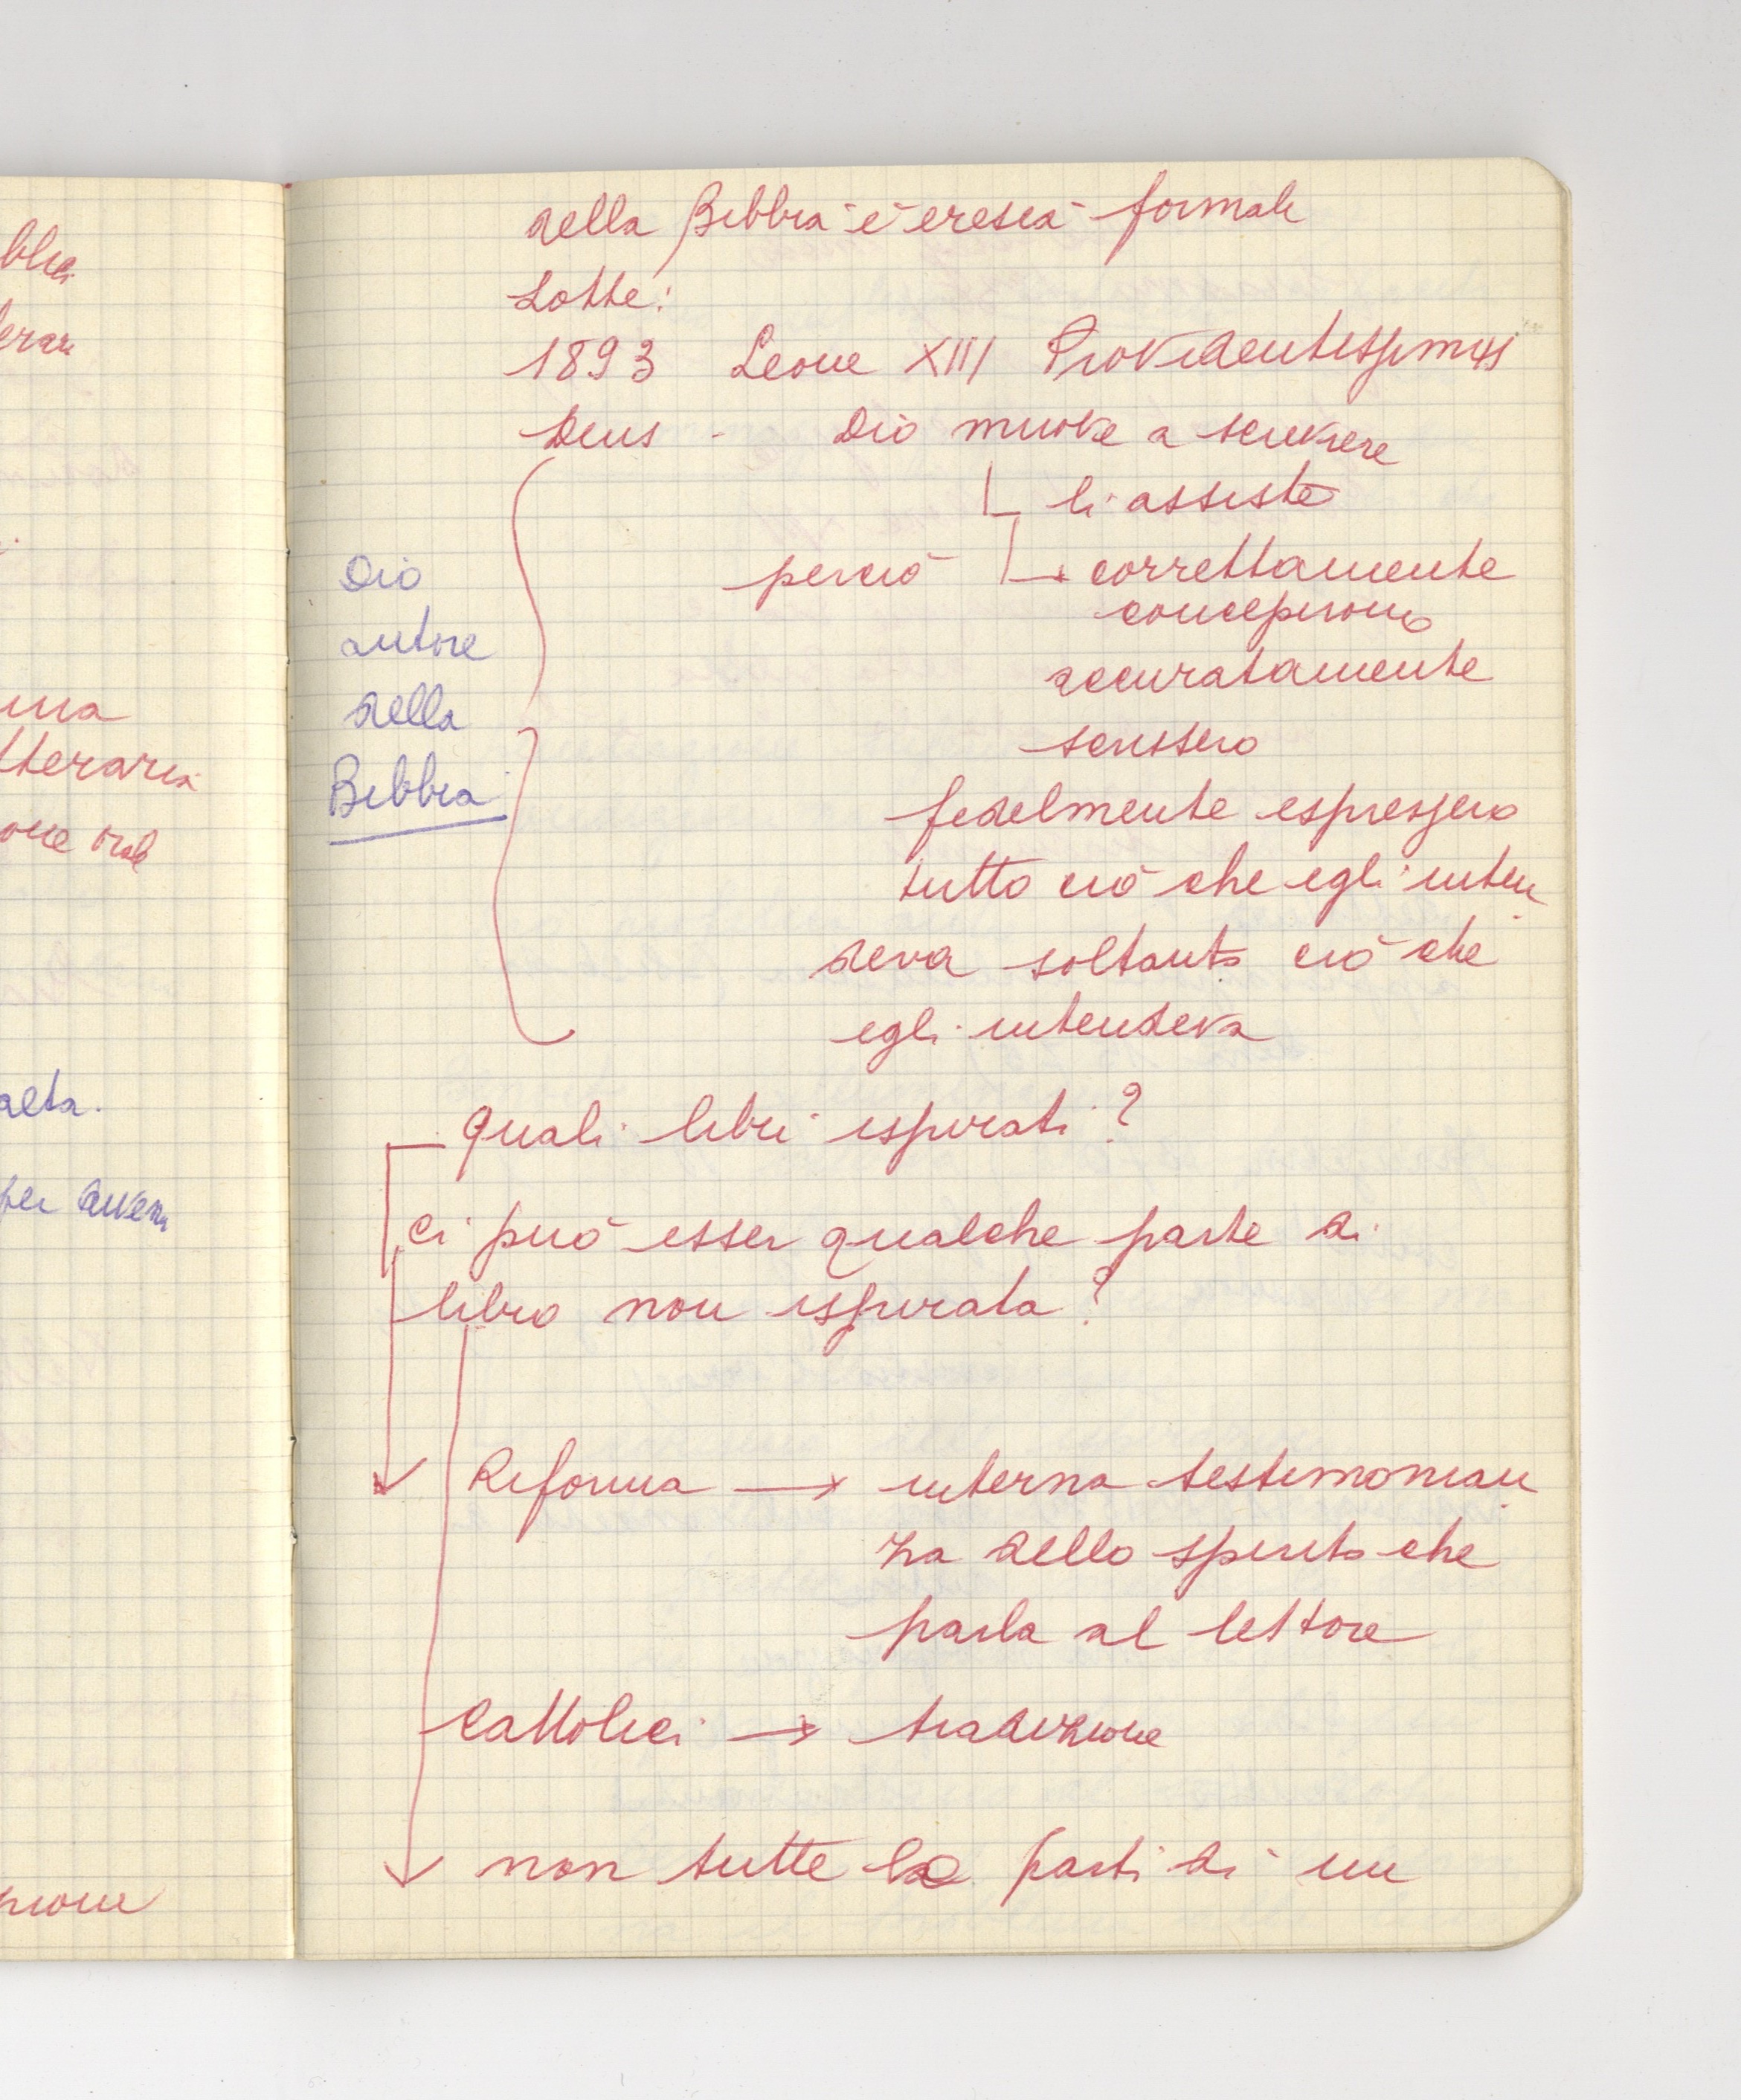 della Bibbia è eresia formale
Lotte:
1893 Leone XIII Providentissimus
Deus - Dio muove a scrivere
li assiste
perciò → correttamente
concepirono
accuratamente
scrissero
fedelmente espressero
tutto ciò che egli inten
deva soltanto ciò che
egli intendeva
Dio
autore
della
Bibbia
Quali libri ispirati?
ci può esser qualche parte di
libro non ispirata?
Riforma → interna testimonian
za dello spirito che
parla al lettore
Cattolici → tradizione
non tutte le parti di un
blici
una
tteraria
one orale
per avere